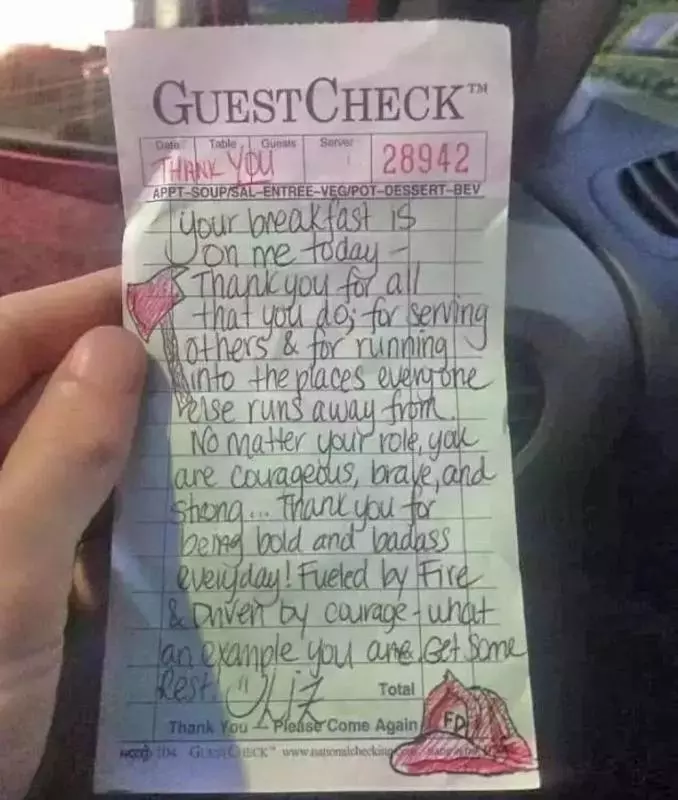 GUESTCHECK™
Date Table Guests Server
THANK YOU
28942
APPT-SOUP/SAL-ENTREE-VEG/POT-DESSERT-BEV
Your breakfast is
on me today -
Thank you for all
that you do; for serving
others & for running
into the places everyone
else runs away from.
No matter your role, you
are courageous, brave, and
strong... Thank you for
being bold and badass
everyday! Fueled by Fire
& Driven by courage - what
an example you are. Get Some
Rest. Liz
Total
FD
Thank You – Please Come Again
GUESTCHECK™ www.nationalchecking